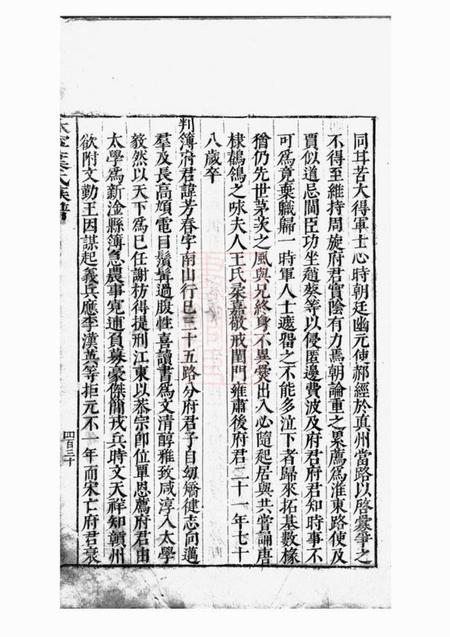 同耳若大得軍士心時朝廷幽元使郝經於真州當路以啓釁爭之
不得至維持周旋府君實陰有力焉朝論重之累薦爲淮東路使及
賈似道忌閫臣功坐趙葵等以侵匿邊費波及府君府君知時事不
可爲竟棄職歸一時軍人士遮留之不能多泣下者歸來拓基數椽
猶仍先世茅茨之風與兄終身不異爨出入必隨起居與共嘗誦唐
棣鶺鴒之咏夫人王氏柔嘉敬戒閨門雍肅後府君三十一年七十
八歲卒
判簿府君諱芳春字南山行巳三十五路分府君子自幼矯健志向邁
羣及長高頎電目鬚髯過腹性喜讀書爲文清醇雅致咸淳入太學
毅然以天下爲巳任謝枋得提刑江東以恭宗卽位單恩薦府君由
太學爲新淦縣簿急農事寬逋負募豪傑簡戎兵時文天祥知贛州
欲附文勤王因謀起義兵應李漢英等拒元不一年而宋亡府君衰
四百三十